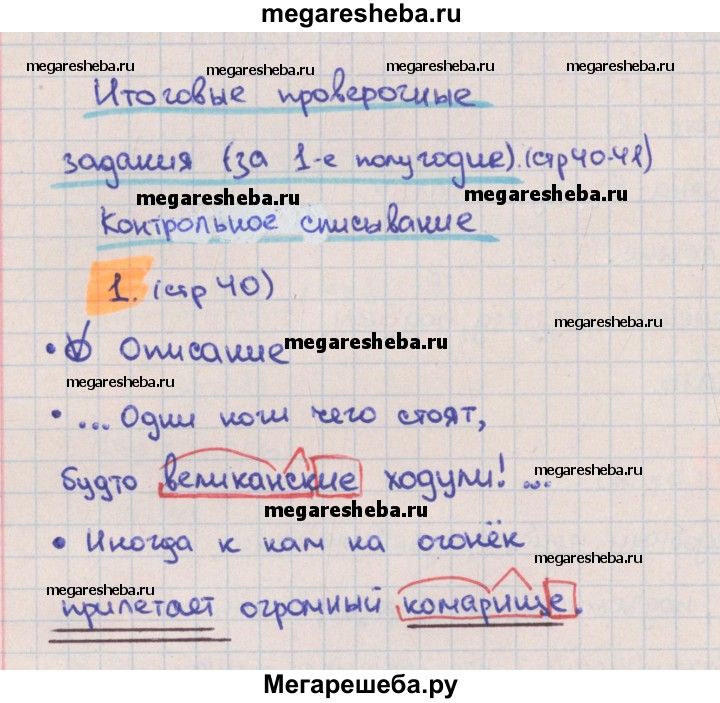 megaresheba.ru
megaresheba.ru megaresheba.ru megaresheba.ru megaresheba.ru
Итоговые проверочные
задания (за 1-е полугодие). (стр 40-41)
megaresheba.ru megaresheba.ru
Контрольное списывание
1. (стр 40)
megaresheba.ru
• V Описание megaresheba.ru
megaresheba.ru
• ... Одни ноги чего стоят,
будто великанские ходули! ...
megaresheba.ru
• Иногда к нам на огонёк
megaresheba.ru
megaresheba.ru
прилетает огромный комарище.
Мегарешеба.ру